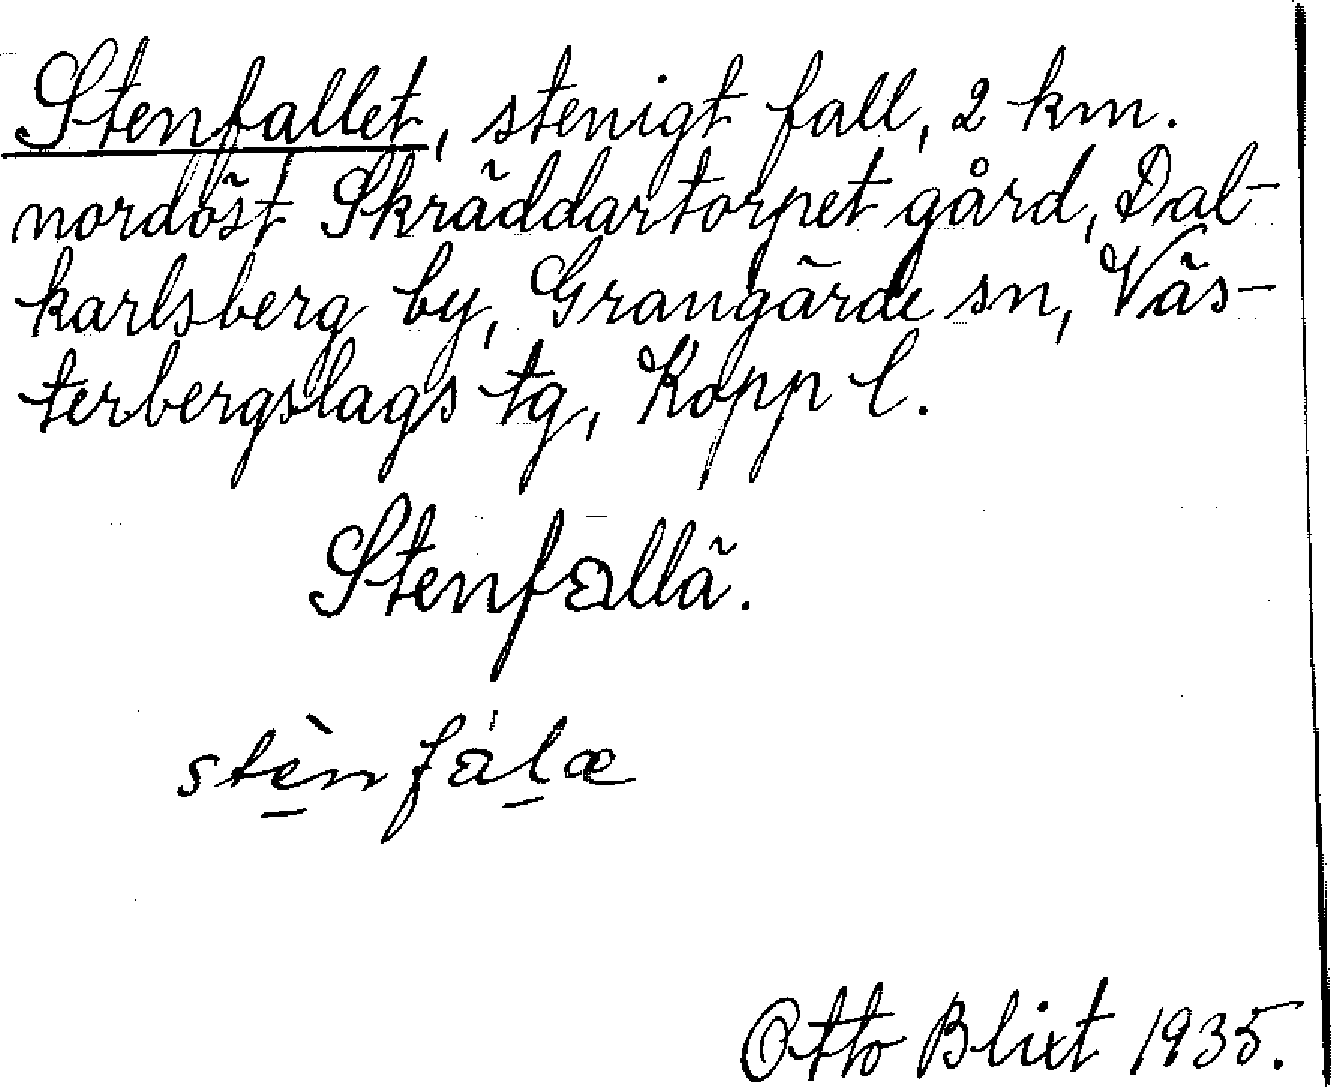 Stenfallet, stenigt fall, 2 km.
nordöst Skräddartorpet gård, Dal-
karlsberg by, Grangärde sn, Väs-
terbergslags tg, Kopp l.
Stenfallä.
stèn fálæ
Otto Blixt 1935.